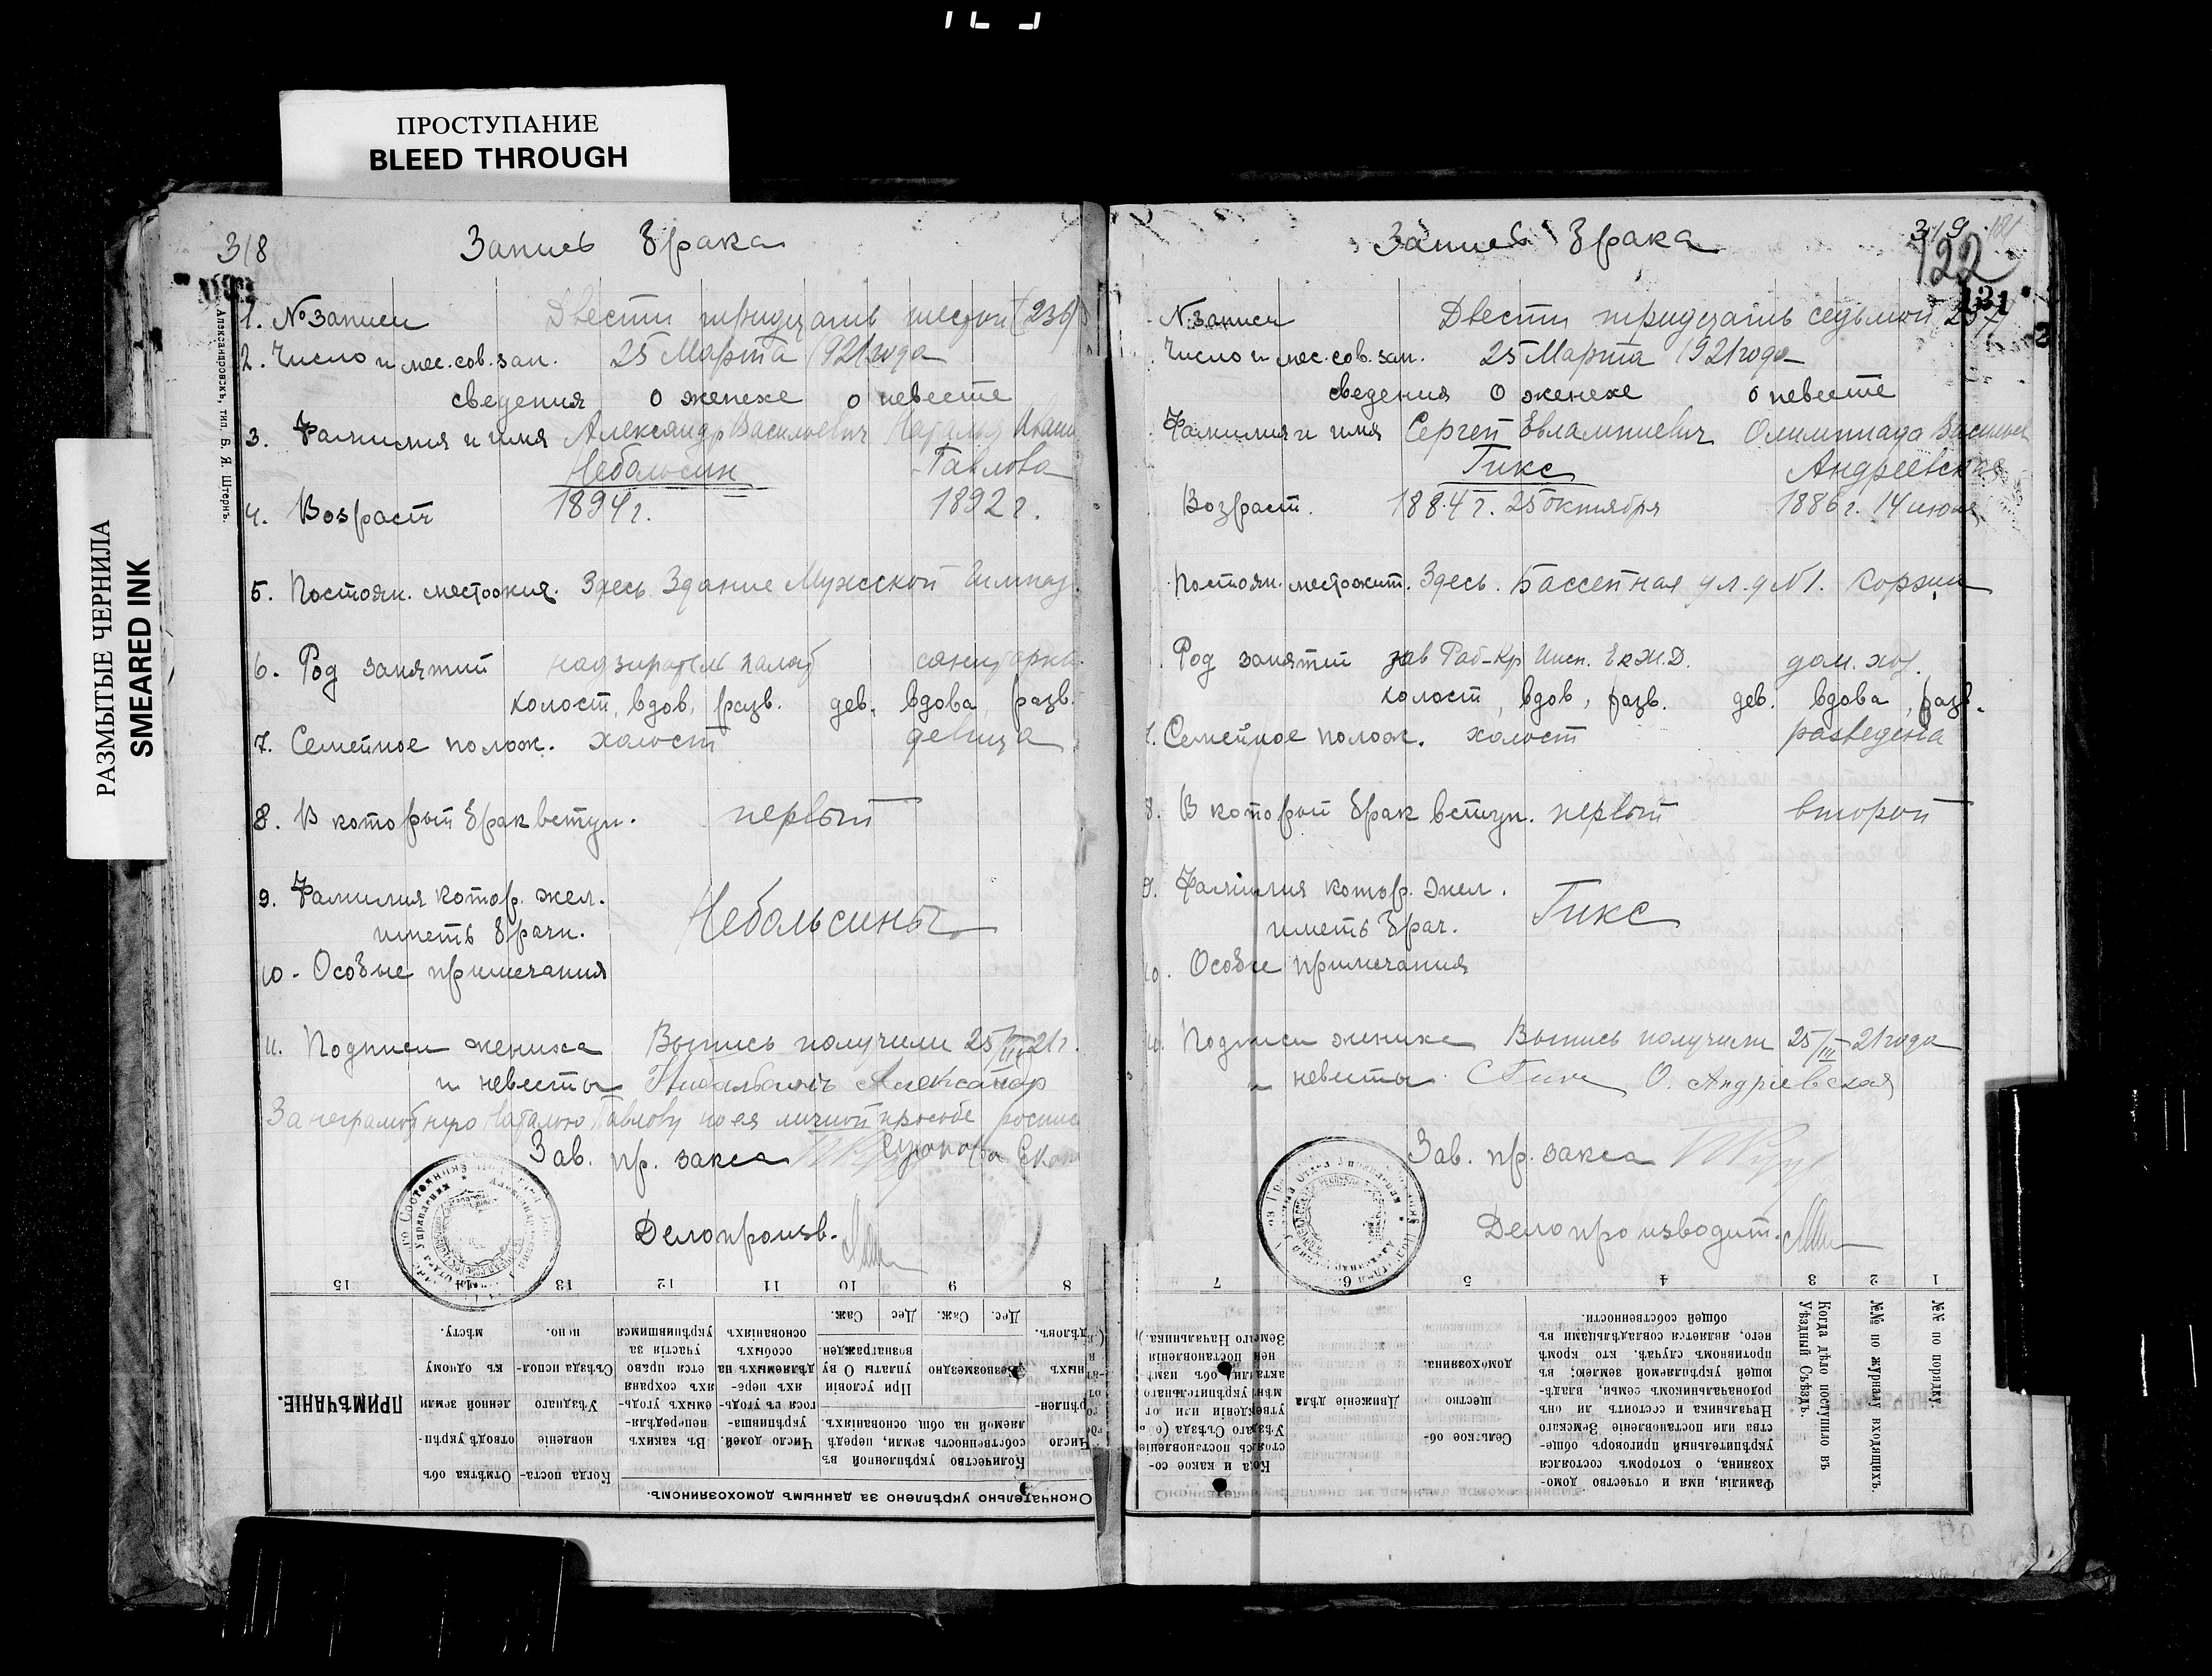 ПРОСТУПАНИЕ
BLEED THROUGH
РАЗМЫТЫЕ ЧЕРНИЛА
SMEARED INK
318
Запись брака
Александровскъ, тип. Б. Я. Штернъ.
1. № записи Двести тридцать шестой (236)
2. Число и мес. сов. зап. 25 Марта 1921 года
сведения о женехе о невесте
3. Фамилия и имя Александр Васильевич Наталья Иван
Небольсин Павлова
4. Возраст 1894 г. 1892 г.
5. Постоян. местожит. Здесь Здание Мужской Гимназ.
6. Род занятий надзиратель палат санитарка
холост, вдов, разв. дев. вдова, разв.
7. Семейное полож. холост девица
8. В который брак вступ. первый
9. Фамилия котор. жел. Небольсины
иметь брачн.
10. Особые примечания
11. Подписи жениха Выпись получили 25/III 21 г.
и невесты Александр
За неграмотную Наталью Павлову по ея личной просьбе роспис
Зав. пр. загса
Делопроизв.
15 14 13 12 11 10 9 8
Дес. Саж. Дес. Саж.
Безвозмездно
При условіи уплаты О ву вознагражден.
Количество укрѣпленной въ собственность земли, передѣляемой на общ. основаніяхъ.
Число долей.
Въ какихъ непередѣляемыхъ угодьяхъ сохраняется право участія за укрѣпившимся
Когда постановленіе Уѣзднаго Съѣзда исполнено.
Отмѣтка объ отводѣ укрѣпленной земли къ одному мѣсту.
ПРИМѢЧАНІЕ.
Окончательно укрѣплено за даннымъ домохозяиномъ.
319 121
122
131
Запись брака
№ записи Двести тридцать седьмой 237
Число и мес. сов. зап. 25 Марта 1921 года
сведения о женехе о невесте
Фамилия и имя Сергей Евлампиевич Олимпиада Васильев
Гикс Андреевская
Возраст. 1884 г. 25 октября 1886 г. 14 июня
Постоян. местожит. Здесь. Бассейная ул. д №1.
Род занятий зав Раб-Кр Инсп. Ек Ж.Д. дом. хоз.
холост, вдов, разв. дев. вдова, разв.
7. Семейное полож. холост разведена
8. В который брак вступ. первый второй
9. Фамилия котор. жел. Гикс
иметь брач.
10. Особые примечания
11. Подписи женихе Выпись получили 25/III 21 года
и невесты СГикс О. Андриевская
Зав. пр. загса
Делопроизводит.
7 6 5 4 3 2 1
№№ по порядку.
№№ по журналу входящихъ.
Когда дѣло поступило въ Уѣздный Съѣздъ.
Фамилія, имя и отчество домохозяина, о которомъ состоялся укрѣпительный приговоръ общества или постановленіе Земскаго Начальника и состоитъ ли онъ родоначальникомъ семьи, владѣющей укрѣпляемой землею; въ противномъ случаѣ. кто кромѣ него, является совладѣльцами въ общей собственности.
Сельское общество домохозяина.
Движеніе дѣла
Когда и какое состоялось постановленіе Уѣзднаго Съѣзда
Земскаго Начальника.)